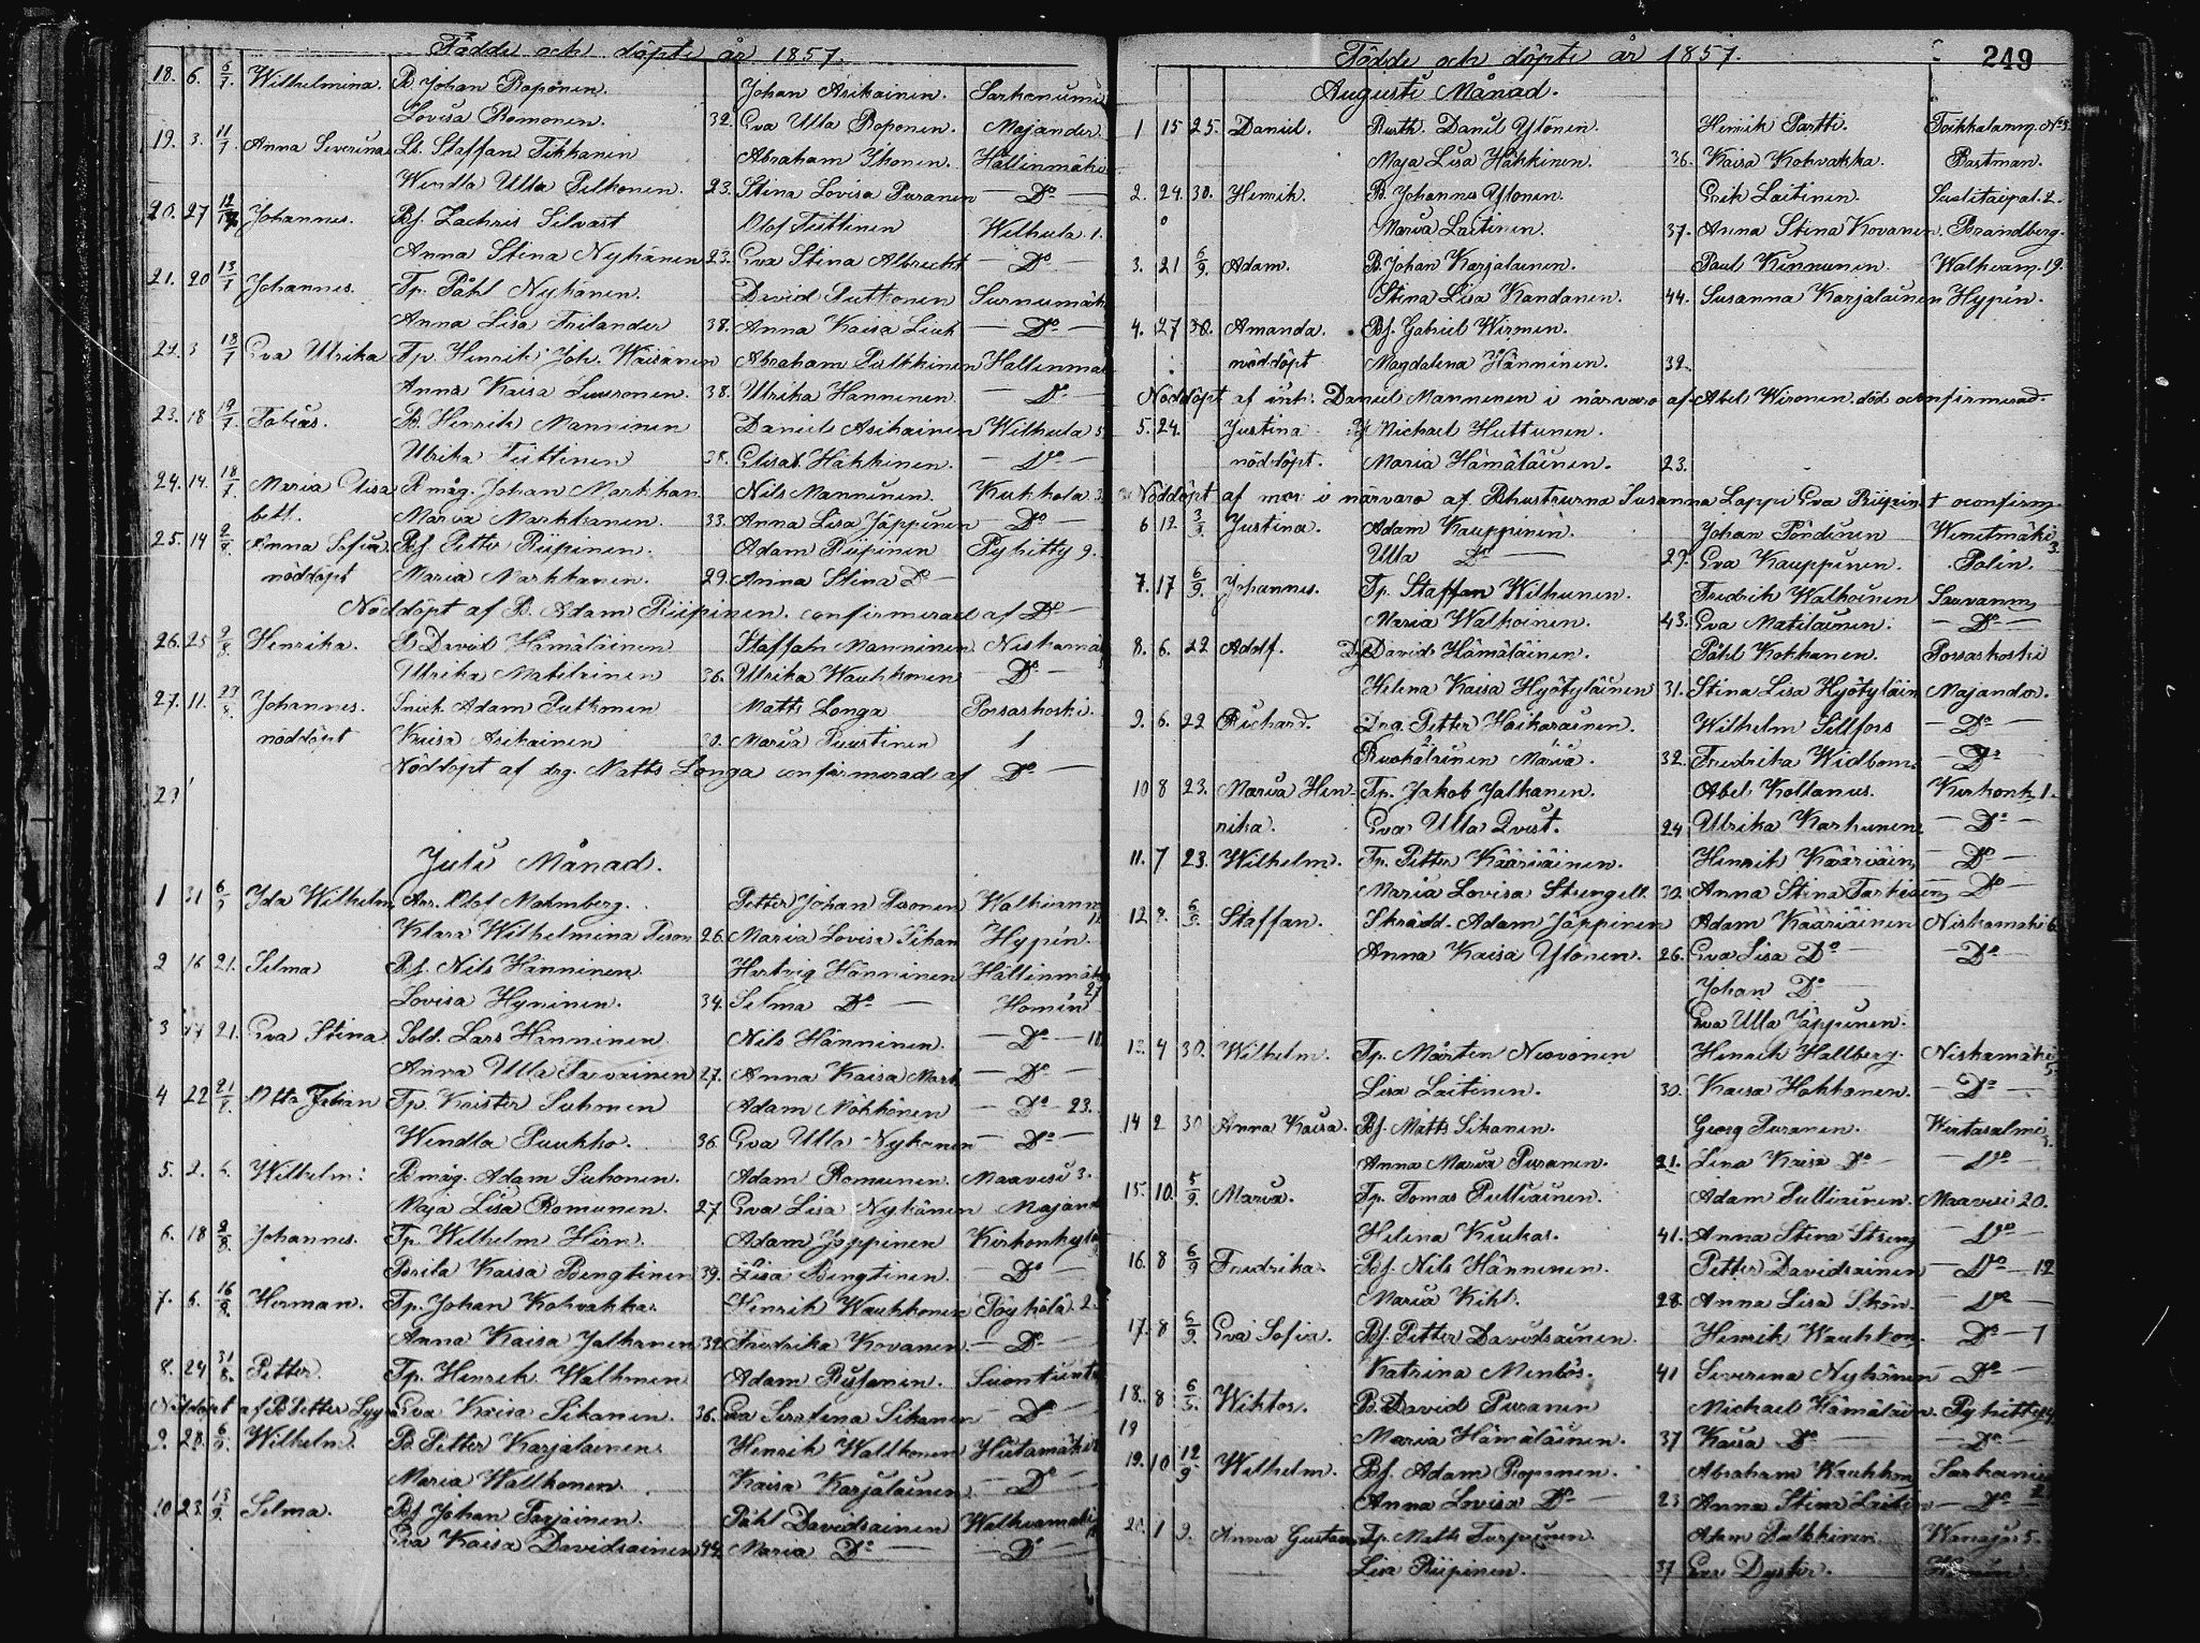 Födde och döpte år 1857.
18. 6. 6/7. Wilhelmina. B. Johan Roponen. Johan Asikainen. Sarkanumi
Lovisa Romonen. 32. Eva Ulla Roponen. Majander.
19. 3. 11/7 Anna Severina Staffan Tikkanen Abraham Ihonen. Hällinmäki
Wendla Ulla Pelkonen. 23. Stina Lovisa Puranen Do
20. 27 Johannes. Bf. Zachris Silvast Olof Tiittinen Wilhula 1.
Anna Stina Nykänen 23. Eva Stina Albrecht Do
21. 20 13/7 Johannes. Tp. Påhl Nykänen. David Putkonen Surnumäki
Anna Lisa Frilander 38. Anna Kaisa Liuk Do
22. 3 18/7 Eva Ulrika Tp. Henrik Joh. Wäisänen Abraham Pulkkinen Hällinmäk
Anna Kaisa Suuronen. 38. Ulrika Hänninen. Do
23. 18 19/7. Tobias. B. Henrik Manninen Daniel Asikainen Wilhula 5
Ulrika Tiittinen 38. Elisab. Häkkinen. Do
24. 14. 18/7. Maria Lisa B. måg. Johan Markkan. Nils Manninen. Kukkola 3.
Maria Markkanen. 33. Anna Lisa Jäppinen Do
25. 14 2/8. Anna Sofia. Bf. Petter Riipinen. Adam Riipinen Pyhitty 9.
nöddöpt Maria Markkanen. 29. Anna Stina Do
Nöddöpt af B. Adam Riipinen. confirmerad af Do
26. 25 9/8. Henrika. B. David Hämäläinen Staffan Manninen Niskamäk
Ulrika Matilainen 36. Ulrika Wauhkonen Do
27. 11. 23/8. Johannes. Snick. Adam Putkonen Matts Longa Porsaskoski.
nöddöpt Kaisa Asikainen 30. Maria Puustinen
Nöddöpt af drg. Matts Longa confirmerad af Do
Juli Månad.
1 31 6/9 Ida Wilhelm Arr. Olof Malmberg. Petter Johan Pesonen Walkiamä
Klara Wilhelmina Peson 26. Maria Lovisa Hypén.
2 16 21. Selma Bf. Nils Hänninen. Hertvig Hänninen Hällinmäk
Lovisa Hyninen. 34. Selma Do Homén 27
3 17 21. Eva Stina Sold. Lars Hänninen Nils Hänninen. Do 18
Anna Ulla Tarvainen 27. Anna Kaisa Mark Do
4 22 21/8. Otto Johan Tp. Krister Suhonen Adam Möhkönen Do 23.
Wendla Puukko. 36. Eva Ulla Nykänen Do
5. 2. 6. Wilhelm: B. måg. Adam Suhonen. Adam Romunen. Maavesi 3.
Maja Lisa Romunen. 27 Eva Lisa Nykänen Majand
6. 18 2/8. Johannes. Tp. Wilhelm Hirn. Adam Jäppinen Kirkonkylä
Brita Kaisa Bengtinen 39. Lisa Bengtinen. Do
7. 6. 16/8. Herman. Tp. Johan Kohvakka. Henrik Wauhkonen Pöyhölä. 2.
Anna Kaisa Jalkanen 32 Fredrika Kovanen. Do
8. 24 31/8. Petter. Tp. Henrik Walkonen Adam
Nöddöpt af B. Petter Eva Kaisa Sikanen. 36. Eva Sikanen Do
9. 28. 6/9. Wilhelm. B. Petter Karjalainen. Henrik Walkonen Hiitamäki
Maria Walkonen. Kaisa Karjalainen. Do
10 23 13/9. Selma. Bf. Johan Parjainen. Påhl Davidsainen Walkiamäki
Eva Kaisa Davidsainen 44. Maria Do Do
Födde och döpte år 1857. 249
Augusti Månad.
1 15 25. Daniel. Rusth. Daniel Ylönen. Henrik Partti. Toikkalanm. No 3.
Maja Lisa Häkkinen. 36. Kaisa Kohvakka. Bastman.
2. 24. 30. Henrik. B. Johannes Ylönen. Erik Laitinen.
Maria Laitinen. 37. Anna Stina Kovanen. Brandberg.
3. 21 6/9. Adam. B. Johan Karjalainen. Paul Kinnunen. Walkeam. 19.
Stina Lisa Kandanen. 44. Susanna Karjalainen Hypén.
4. 27 30. Amanda. Bf. Gabriel Wironen.
nöddöpt Magdalena Hänninen. 32.
Nöddöpt af inh. Daniel Manninen i närvaro af Abel Wironen död oconfirmerad.
5. 24. Justina Michael Huttunen.
nöddöpt. Maria Hämäläinen. 23.
Nöddöpt af mor i närvaro af Bhustrurna Susanna Lappi Eva Riipin + oconfirm
6 12. Justina. Adam Kauppinen. Johan Pöndinen Wenetmäki 3.
Ulla Do 27. Eva Kauppinen. Polén.
7. 17 6/9. Johannes. Tp. Staffan Wilhunen. Fredrik Walkoinen Sauvanm
Maria Walkoinen. 43. Eva Matilainen. Do
8. 6. 22 Adolf. David Hämäläinen. Påhl Kokkanen. Porsaskoski
Helena Kaisa Hyötyläinen 31. Stina Lisa Hyötyläin Majander.
9. 6. 22 Richard. Drg. Petter Haikarainen. Wilhelm Sellfors Do
Ruokalainen Maria. 32. Fredrika Widbom. Do
10 8 23. Maria Hen- Tp. Jakob Jalkanen. Abel Koltanus. Kirkonk 1.
rika. Eva Ulla Qvist. 24 Ulrika Karhunen. Do
11. 7 23. Wilhelm. Tp. Petter Kääriäinen. Henrik Kääriäin Do
Maria Lovisa Strengell. 30. Anna Stina Tarkiain Do
12 8. 6/9. Staffan. Skrädd. Adam Jäppinen Adam Kääriäinen Niskamäki 6
Anna Kaisa Ylönen. 26. Eva Lisa Do Do
Johan Do
Eva Ulla Jäppinen.
13. 4 30. Wilhelm. Tp. Mårten Neovonen Henrik Hallberg. Niskamäki 5
Lisa Laitinen. 30. Kaisa Hokkanen. Do
14 2 30 Anna Kaisa. Bf. Matts Sikanen. Georg Puranen. Wirtasalmi
Anna Maria Puranen. 21. Lena Kaisa Do Do
15. 10. 5/9. Maria. Tp. Tomas Pulliainen. Adam Pulliainen. Maavesi 20.
Helena Kiukas. 41. Anna Stina Streng Do
16. 8 6/9 Fredrika. Bf. Nils Hänninen. Petter Davidsainen Do 12
Maria Kihl. 28. Anna Lisa Skön. Do
17. 8 6/9. Eva Sofia. Bf. Petter Davidsainen. Henrik Wauhkon Do 7
Katrina Menlös. 41 Severina Nykänen Do
18. 8 Wiktor. B. David Puranen Michael Hämäläin. Pyhitty
19 Maria Hämäläinen. 37 Kaisa Do Do
19. 10 12/9. Wilhelm. Bf. Adam Roponen. Abraham Wauhkon Sarkami
Anna Lovisa Do 23 Anna Stina Laitin Do
20. 1 9. Anna Gustava Tp. Matts Tarjunen Adam Pulkkinen. Wanaja 5.
Lisa Riipinen. 37 Eva Dyster.